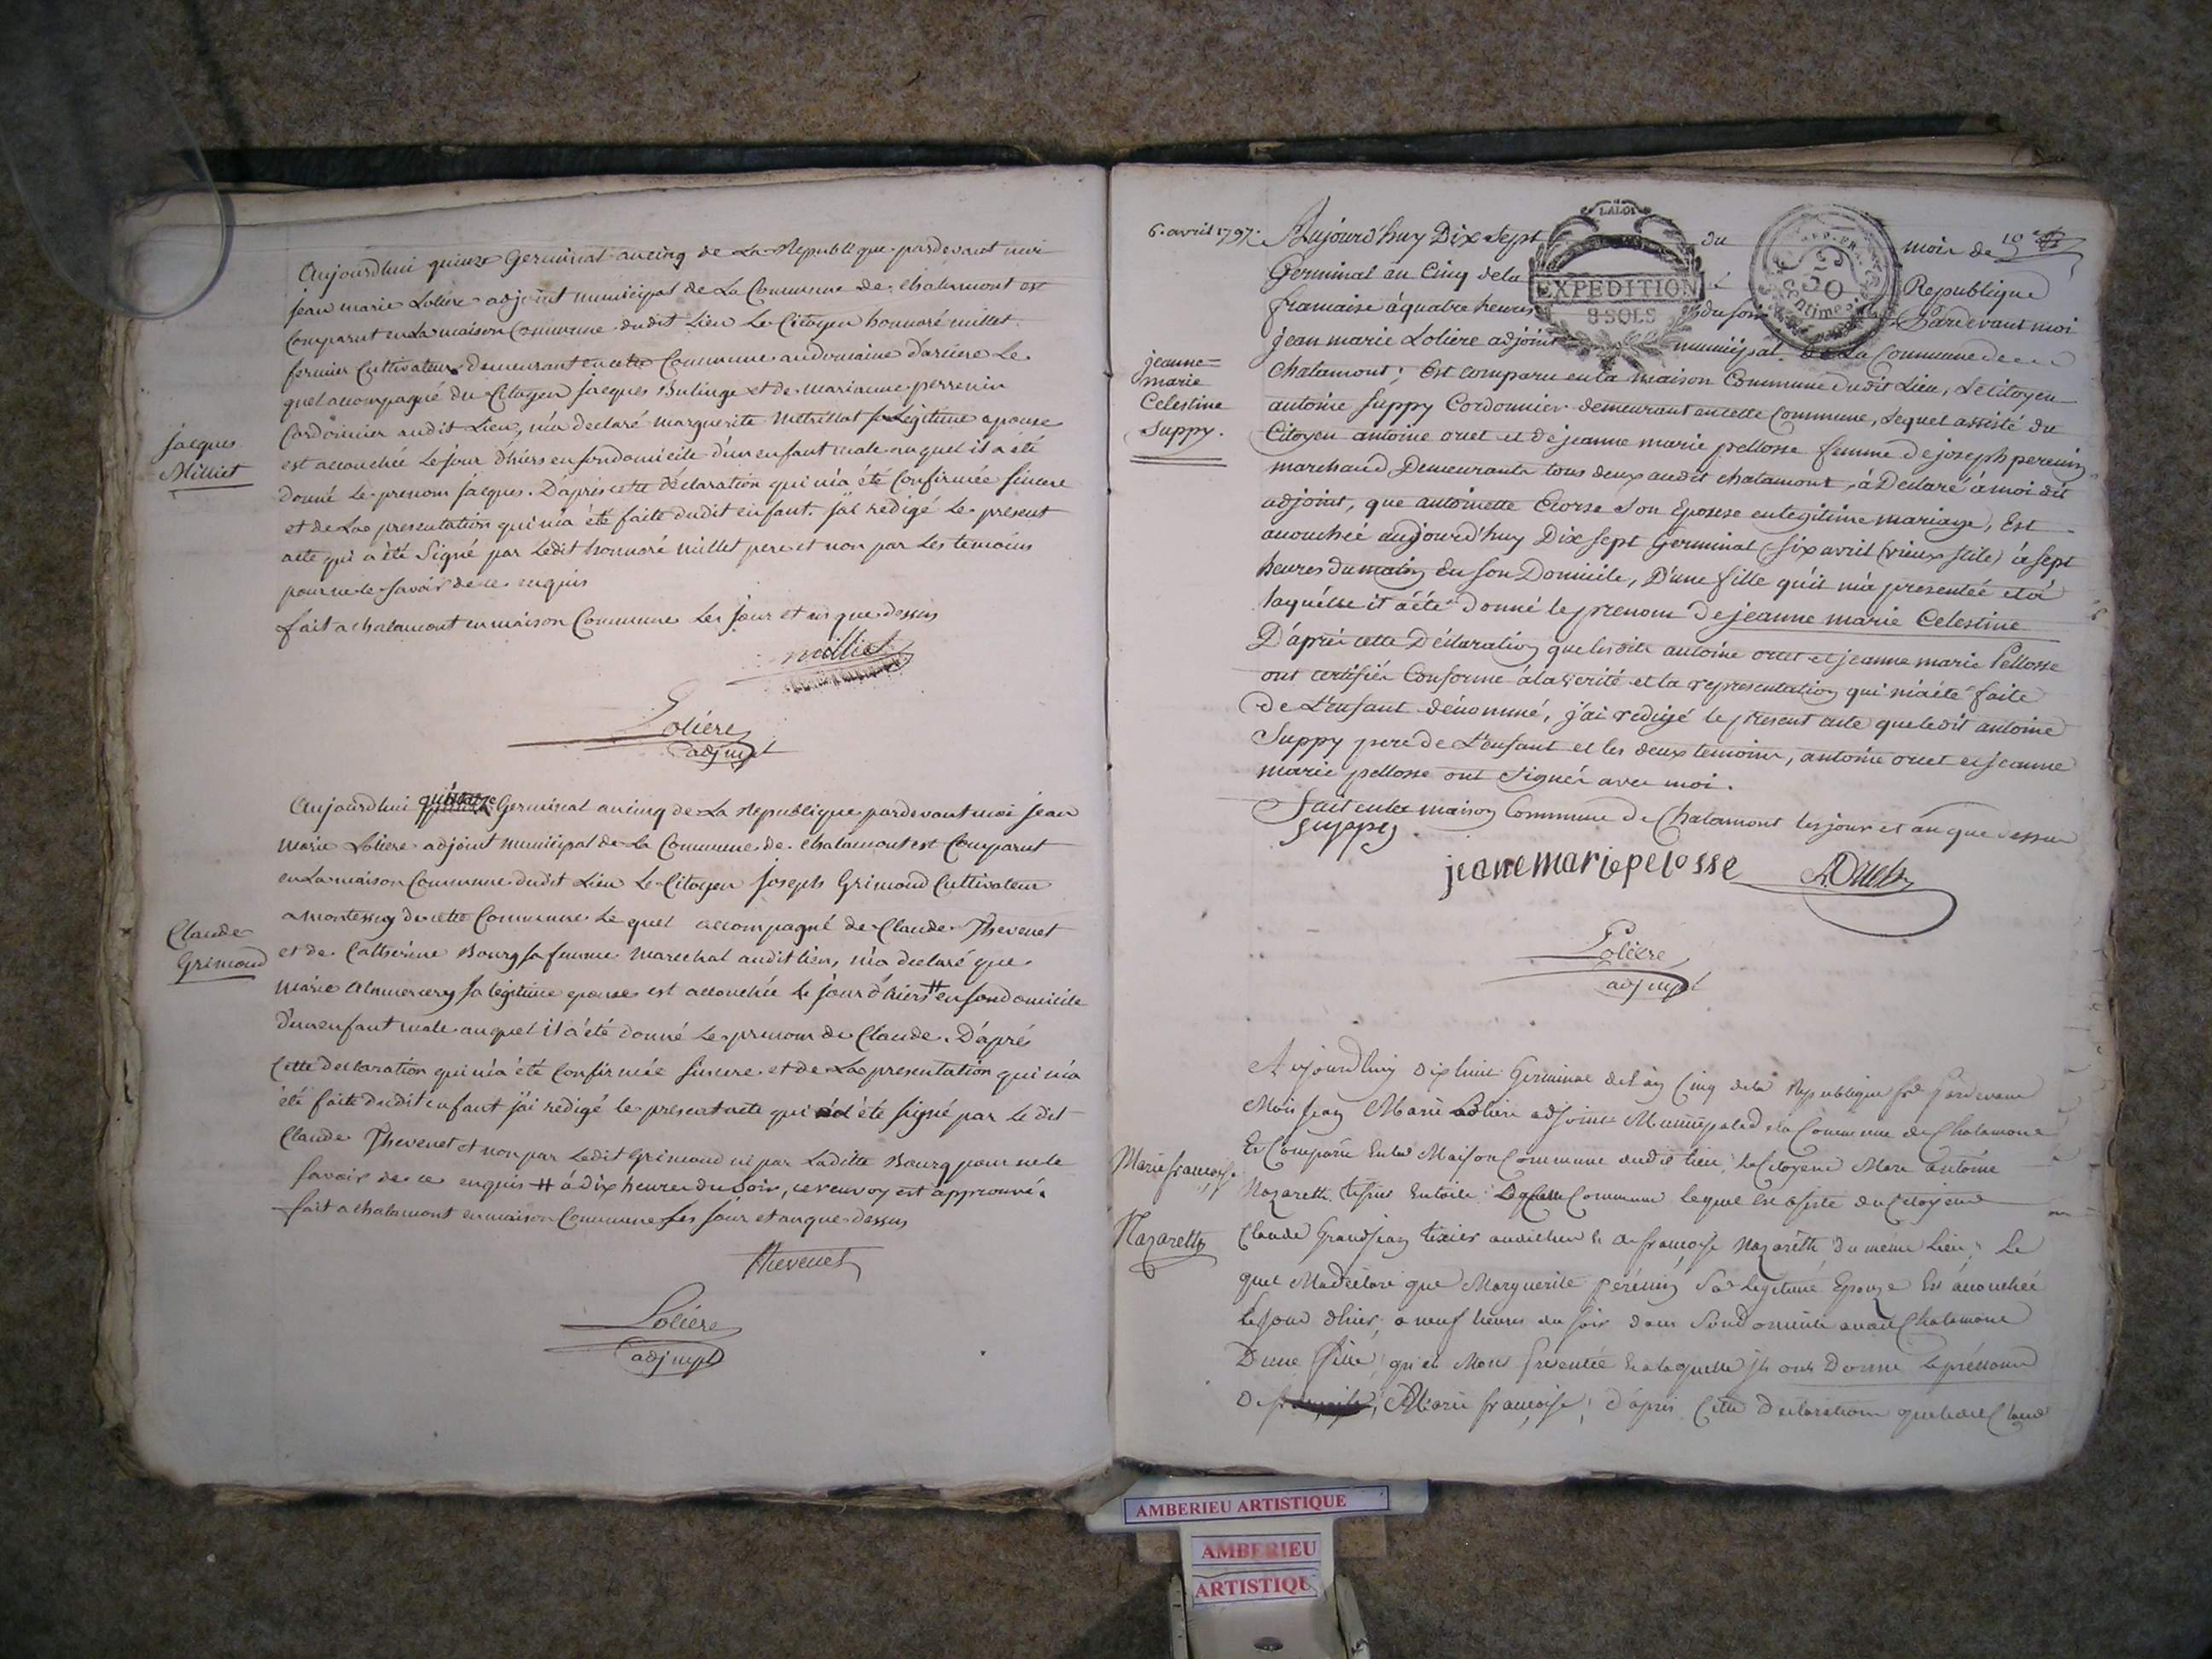 Aujourdhui quinze Germinal an cinq de La Republique pardevant moi
jean marie Loliere adjoint municipal de La Commune de chalamont est
Comparut en La maison Commune dudit Lieu Le Citoyen honnoré millet
fermier Cultivateur demeurant en cette Commune au domaine Le
quel accompagné du Citoyen jacques Bulinge et de marianne perrenin
Cordonnier audit Lieu, m'a declaré marguerite sa Legitime epouse
est accouchée Le jour d'hiers en son domicile d'un enfant male auquel il a été
donné Le prenom jacques. D'après cette déclaration qui m'a été Confirmée sincere
et de La presentation qui m'a été faite dudit enfant. j'ai redigé Le present
acte qui a été Signé par Ledit honnoré millet pere et non par Les temoins
pour ne le savoir de ce enquis
fait a chalamont en maison Commune Les jour et an que dessus
jacques
Milliet
milliet
Loliere
adj mpl
Aujourdhui Germinal an cinq de La Republique pardevant moi jean
marie Loliere adjoint municipal de La Commune de chalamont est Comparut
en La maison Commune dudit Lieu Le Citoyen joseph Grimoud Cultivateur
a montessuy de cette Commune Le quel accompagné de Claude Thevenet
et de Catherine Bourg sa femme marechal audit lieu, m'a declaré que
marie sa legitime epouse est accouchée le jour d'hiers # en son domicile
d'un enfant male auquel il a été donné Le prenom de Claude. D'après
Cette declaration qui m'a été Confirmée sincere et de La presentation qui m'a
été faite dudit enfant j'ai redigé le present acte qui a été signé par Le dit
Claude Thevenet et non par Ledit Grimoud ni par Laditte Bourg pour ne le
savoir de ce enquis # à dix heures du soir, ce renvoy est approuvé.
fait a chalamont en maison Commune Les jour et an que dessus
Claude
Grimoud
Thevenet
Loliere
adj mpl
6. avril 1797.
Aujourd'huy Dix Sept du mois de
Germinal an Cinq de la Republique
francaise à quatre heures du soir Pardevant moi
jean marie Loliere adjoint municipal de La Commune de
chalamont; Est comparu en la maison Commune dudit Lieu, Le citoyen
antoine Suppy Cordonnier demeurant en cette Commune, Lequel assisté du
Citoyen antoine oruet et de jeanne marie pellosse femme de joseph perenin
marchand Demeurants tous deux audit chalamont, à Declaré à moi dit
adjoint, que antoinette Ciorse Son Epouse en legitime mariage, Est
accouchée aujourd'huy Dix sept Germinal (six avril (vieux stile) à sept
heures du matin En son Domicile, D'une fille qu'il m'a presentée et à
laquelle il a été donné le prenom de jeanne marie Celestine
D'après cette Déclaration que lesdits antoine oruet et jeanne marie Pellosse
ont certifiés Conforme à la verité et la representation qui m'a été faite
de L'enfant dénommé, j'ai redigé le present acte que ledit antoine
Suppy pere de L'enfant et les deux temoins, antoine oruet et jeanne
marie pellosse ont signés avec moi.
Fait en la maison Commune de Chalamont les jour et an que dessus
LA LOI
EXPEDITION
8 SOLS
50
centimes
jeanne=
marie
Celestine
Suppy.
suppy
jeane marie pelosse
Loliere
adj mpl
Aujourdhuy dix huit Germinal de L'an Cinq de la Republique pardevant
Moi jean Marie Loliere adjoint Municipal de la Commune de Chalamont
Est Comparu En la Maison Commune dudit lieu, Le Citoyen Marc antoine
Nazareth tissier en toile Commune lequel est assisté du Citoyen
Claude Grandjean tixier audit lieu et de francoise Nazareth du même Lieu, Le
quel M'a déclaré que Marguerite pérénin Sa Legitime Epouse Est accouchée
le jour d'hier, a neuf heures du soir dans Son Domicile audit Chalamont
D'une fille, qu'il M'ont présentée et a laquelle ils ont Donné Le prénom
De Marie francoise; d'après Cette Declaration que ledit Claud
Marie francoise
Nazareth
AMBERIEU ARTISTIQUE
AMBERIEU
ARTISTIQU